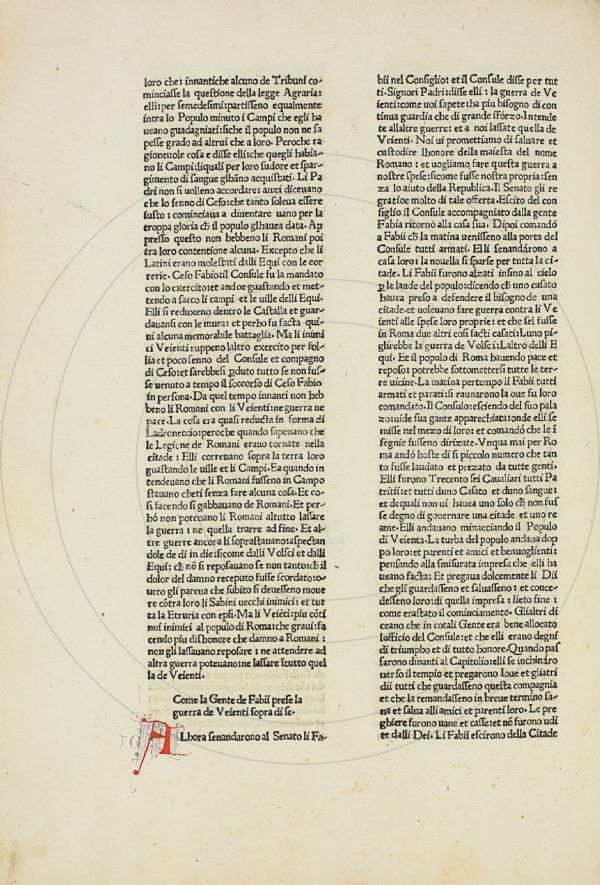 loro che: innantiche alcuno de Tribuni co-
minciasse la questione della legge Agraria:
elli: per semedesimi: partisseno equalmente
intra lo Populo minuto i Campi che egli ha
ueano guadagniati: siche il populo non ne sa
pesse grado ad altrui che a loro. Peroche ra
gioneuole cosa e disse elli: che quegli habia-
no li Campi: li quali per loro sudore et spar-
gimento di sangue glhāno acquistati. Li Pa
dri non si uolleno accordare: anzi diceuano
che lo senno di Ceso: che tanto soleua essere
iusto: cominciaua a diuentare uano per la
troppa gloria cħ il populo glhauea data. Ap
presso questo non hebbeno li Romani poi
tra loro contentione alcuna. Excepto che li
Latini erano molestati dalli Equi con le cor
rerie. Ceso Fabio: il Consule fu la mandato
con lo exercito: et andoe guastando et met-
tendo a sacco li campi et le uille delli Equi.
Elli si reduxeno dentro le Castella et guar-
dauansi con le mura: et perho fu facta qui-
ui alcuna memorabile battaglia. Ma li inimi
ci Veienti ruppeno laltro exercito per fol-
lia et poco senno del Consule et compagno
di Ceso: et sarebbesi ꝑduto tutto se non fus-
se uenuto a tempo il soccorso di Ceso Fabio
in persona. Da quel tempo innanti non heb
beno li Romani con li Veienti: ne guerra ne
pace. La cosa era quasi reducta in forma di
Ladroneccio: peroche quando sapeuano che
le Legione de Romani erano tornate nella
citade: Elli correuano sopra la terra loro
guastando le uille et li Campi. Ea quando in
tendeuano che li Romani fusseno in Campo
stauano cheti senza fare alcuna cosa. Et co-
si facendo si gabbauano de Romani. Et per-
hò non poteuano li Romani altutto lassare
la guerra: ne quella trarre ad fine. Et al-
tre guerre ancora li soprastauano: aspectan
dole de di in die: si come dalli Volsci et dalli
Equi: cħ nō si reposauano se non tanto: cħ il
dolor del damno receputo fusse scordato: o-
uero gli parea che subito si deuesseno moue
re cōtra loro li Sabini uecchi inimici: et tut
ta la Etruria con epsi. Ma li Veiēti: piu cōti
nui inimici al populo di Roma: che graui: fa
cendo piu dishonore che damno a Romani:
non gli lassauano reposare: ne attendere ad
altra guerra poteuano: ne lassare ītutto quel
la de Veienti.
Come la Gente de Fabii prese la
guerra de Veienti sopra di se.
ALhora senandarono al Senato li Fa-
bii nel Consiglio: et il Consule disse per tut
ti. Signori Padri: disse elli: la guerra de Ve
ienti: come uoi sapete: ha piu bisogno di con
tinua guardia che di grande sforzo. Intende
te allaltre guerre: et a noi lassate quella de
Veienti. Noi ui promettiamo di saluare et
custodire lhonore della maiesta del nome
Romano: et uogliamo fare questa guerra a
nostre spese: si come fusse nostra propria: sen
za lo aiuto della Republica. Il Senato gli re
gratioe molto di tale offerta. Escito del con
siglio il Consule accompagniato dalla gente
Fabia ritornò alla casa sua. Dipoi comandò
a Fabii cħ la matina uenisseno alla porta del
Consule tutti armati. Elli senandárono a
casa loro: la nouella si sparse per tutta la ci-
tade. Li Fabii furono alzati insino al cielo
ꝑ le laude del populo: dicendo cħ uno casato
hauea preso a defendere il bisogno de una
citade. et uoleuano fare guerra contra li Ve
ienti alle spese loro proprie: et che sel fusse
in Roma due altri cosi facti casati: Luno pi-
glirebbe la guerra de Volsci: Laltro delli E
qui. Et il populo di Roma hauendo pace et
reposo: potrebbe sottomettersi tutte le ter-
re uicine. La matina pertempo li Fabii tutti
armati et parati: si raunarono la oue fu loro
comandato. Il Consulo: esciendo del suo pala
zo: uide sua gante apparechiata: onde elli se
misse nel mezo di loro: et comandò che le ī
segnie fusseno dirizate. Vnqua mai per Ro
ma andò hoste di si piccolo numero che tan
to fusse laudato et prezato da tutte genti.
Elli furono Trecento sei Caualiari tutti Pa
tritii: et tutti duno Casato et duno sangue:
et dequali non ui hauea uno solo cħ non fus
se degno di gouernare una citade et uno re
ame. Elli andauano minacciando il Populo
di Veienta. La turba del populo andaua dop
po loro: et parenti et amici et beniuoglienti:
pensando alla smisurata impresa che elli ha
ueano facta: Et pregaua dolcemente li Dii
che gli guardasseno et saluasseno: et conce-
desseno loro: di quella impresa: lieto fine:
come erastato il cominciamento. Gli altri di
ceano che in cotali Gente era bene allocato
lofficio del Consule: et che elli erano degni
di triumpho et di tutto honore. Quando pas
sarono dinanti al Capitolio: elli se inchináro
uerso il tempio et pregarono Ioue et gli atri
dii tutti che guardasseno questa compagnia
et che la remandasseno in breue termino sa-
na et salua alli amici et parenti loro. Le pre
ghiere furono uane et casse: et nō furono udi
te dalli Dei. Li Fabii escirono della Citade